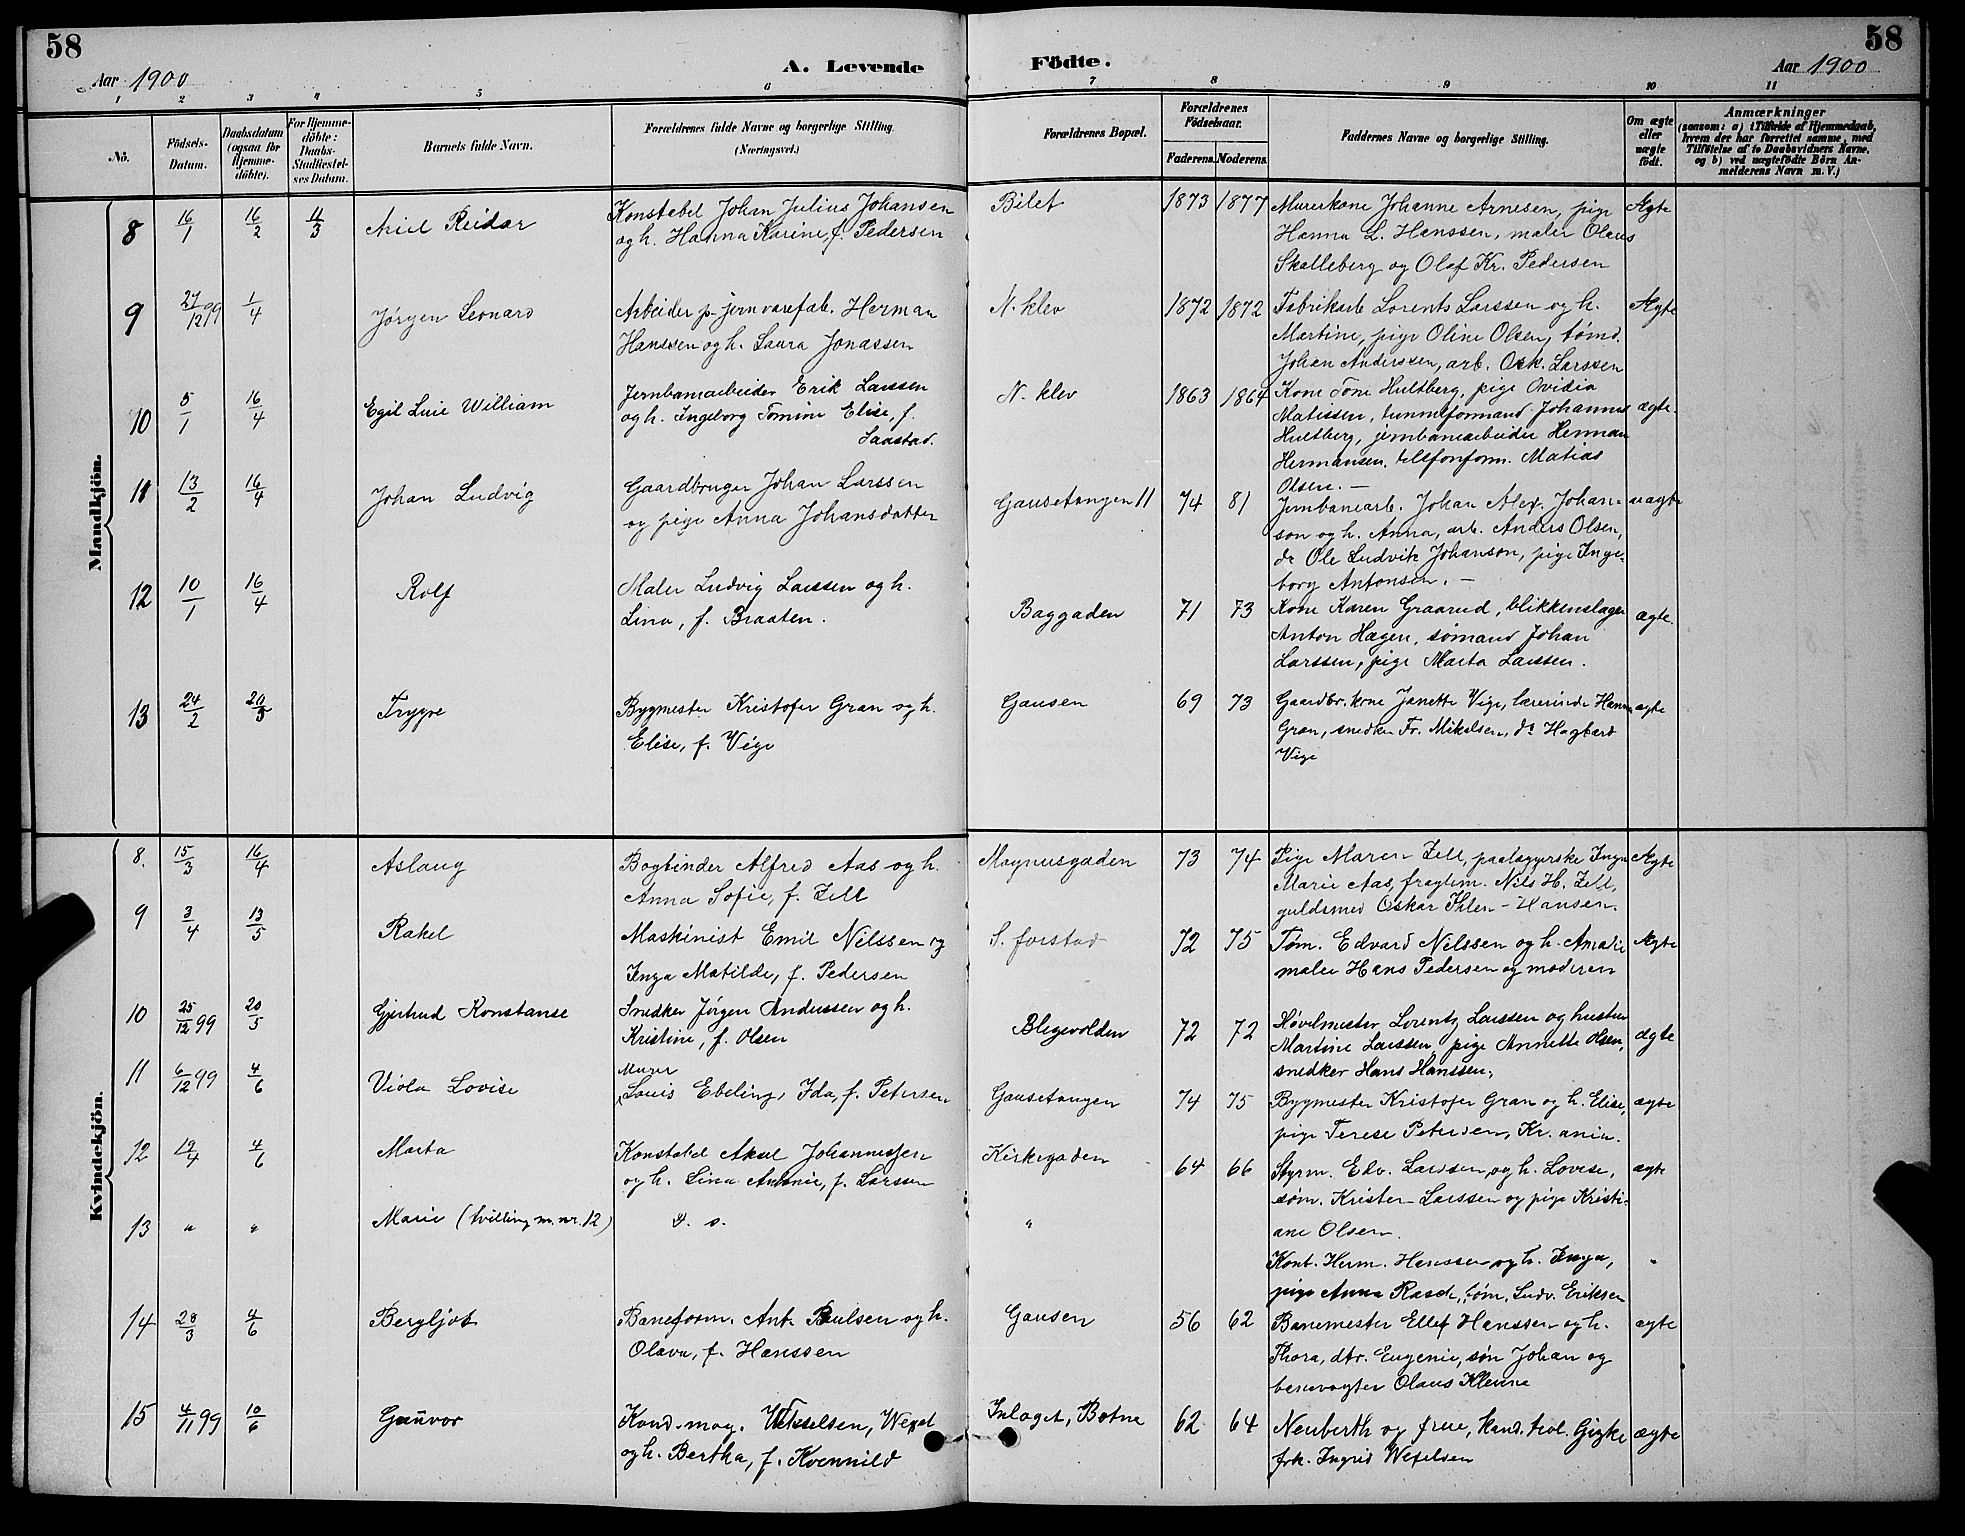 58
Aar 1900
A. Levende Födte.
58
Aar 1900
1 2 3 4 5 6 7 8 9 10 11
No.
Födsels-Datum.
Daabsdatum (ogsaa for Hjemme-döbte).
For Hjemme-döbte: Daabs-Stadfæstel-ses Datum.
Barnets fulde Navn.
Forældrenes fulde Navne og borgerlige Stilling.
(Næringsvei.)
Forældrenes Bopæl.
Forældrenes Födselsaar.
Faderens. Moderens.
Faddernes Navne og borgerlige Stilling.
Om ægte eller uægte födt.
Anmærkninger
(saasom: a) i Tilfælde af Hjemmedaab,
hvem der har forrettet samme, med
Tilföielse af to Daabsvidners Navne,
og b) ved uægtefödte Börn An-
melderens Navn m. V.)
Mandkjön.
8 16/1 16/2 11/3 Ariel Reidar
Konstabel Johan Julius Johansen
og h. Hanna Karine, f. Pedersen
Bilet 1873 1877
Murerkone Johanne Arnesen, pige
Hanna L. Hanssen, maler Olaus
Skalleberg og Olaf Kr. Pedersen
Ægte
9 27/12 99 1/4 Jørgen Leonard
Arbeider p. jernvarefab. Herman
Hanssen og h. Laura Jonassen
N. klev 1872 1872
Fabrikarb Lorents Larssen og h.
Martine, pige Oline Olsen, tømd.
Johan Anderssen, arb. Osk. Larssen
Ægte
10 5/1 16/4 Egil Luie William
Jernbanearbeider Erik Larssen
og h. Ingeborg Tomine Elise, f.
Saastad.
N. klev 1863 1864
Kone Tone Hultberg, pige Ovidia
Matissen, tunnelformand Johannes
Hultberg, jernbanearbeider Herman
Hermansen, telefonform. Matias
Olsen. —
ægte.
11 13/2 16/4 Johan Ludvig
Gaardbruger Johan Larssen
og pige Anna Johansdatter
Gausetangen 11 74 81
Jernbanearb. Johan Alex. Johan-
son og h. Anna, arb. Anders Olsen,
do Ole Ludvik Johanson, pige Inge-
borg Antonsen. —
uægte
12 10/1 16/4 Rolf
Maler Ludvig Larssen og h.
Lina, f. Braaten.
Baggaden 71 73
Kone Karen Graarud, blikkenslager
Anton Hagen, sømand Johan
Larssen, pige Marta Larssen.
ægte.
13 24/2 20/5 Trygve
Bygmester Kristofer Gran og h.
Elise, f. Vige
Gausen 69 73
Gaardbr.kone Janette Vige, lærerinde Hanna
Gran, snedker Fr. Mikelsen, do Hagbard
Vige
ægte
Kvindekjön.
8. 15/3 16/4 Aslaug
Bogbinder Alfred Aas og h.
Anna Sofie, f. Zell
Magnusgaden 73 74
Pige Maren Zell, paalægerske Inga
Marie Aas, fragtem. Nils H. Zell,
guldsmed Oskar Ihlen-Hansen.
Ægte
9 3/4 13/5 Rakel
Maskinist Emil Nilssen og
Inga Matilde, f. Pedersen
S. forstad 72 75
Tøm. Edvard Nilssen og h. Amalie
maler Hans Pedersen og moderen
Ægte
10 25/12 99 20/5 Gjertrud Konstanse
Snedker Jørgen Anderssen og h.
Kristine, f. Olsen
Blegevolden 72 72
Høvelmester Lorentz Larssen og hustru
Martine Larssen pige Annette Olsen,
snedker Hans Hanssen;
ægte
11 6/12 99 4/6 Viola Lovise
Murer
Louis Ebeling, Ida, f. Petersen
Gausetangen 74 75
Bygmester Kristofer Gran og h. Elise,
pige Terese Petersen, Kr.ania.
ægte
12 19/4 4/6 Marta
Konstabel Aksel Johannessen
og h. Lina Antonie, f. Larssen
Kirkegaden 64 66
Styrm. Edv. Larssen og h. Lovise,
søm. Krister Larssen og pige Kristi-
ane Olsen.
ægte
13 " " Marie (tvilling m. nr. 12)
d. o.
"
Konst. Herm. Hanssen og h. Inga,
pige Anna Raade, tøm. Ludv. Eriksen
"
14 28/3 4/6 Bergljot
Baneform. Ant. Paulsen og h.
Olava, f. Hanssen
Gausen 56 62
Banemester Ellef Hanssen og h.
Thora, dtr. Eugenie, søn Johan og
banevogter Olaus Klevne
ægte
15 4/11 99 10/6 Gunvor
Kand. mag. Wexelsen, Wexel
og h. Bertha, f. Kvennild
Inlaget, Botne 62 64
Neuberth og frue, kand. teol. Gjøke
frk. Ingrid Wexelsen
ægte